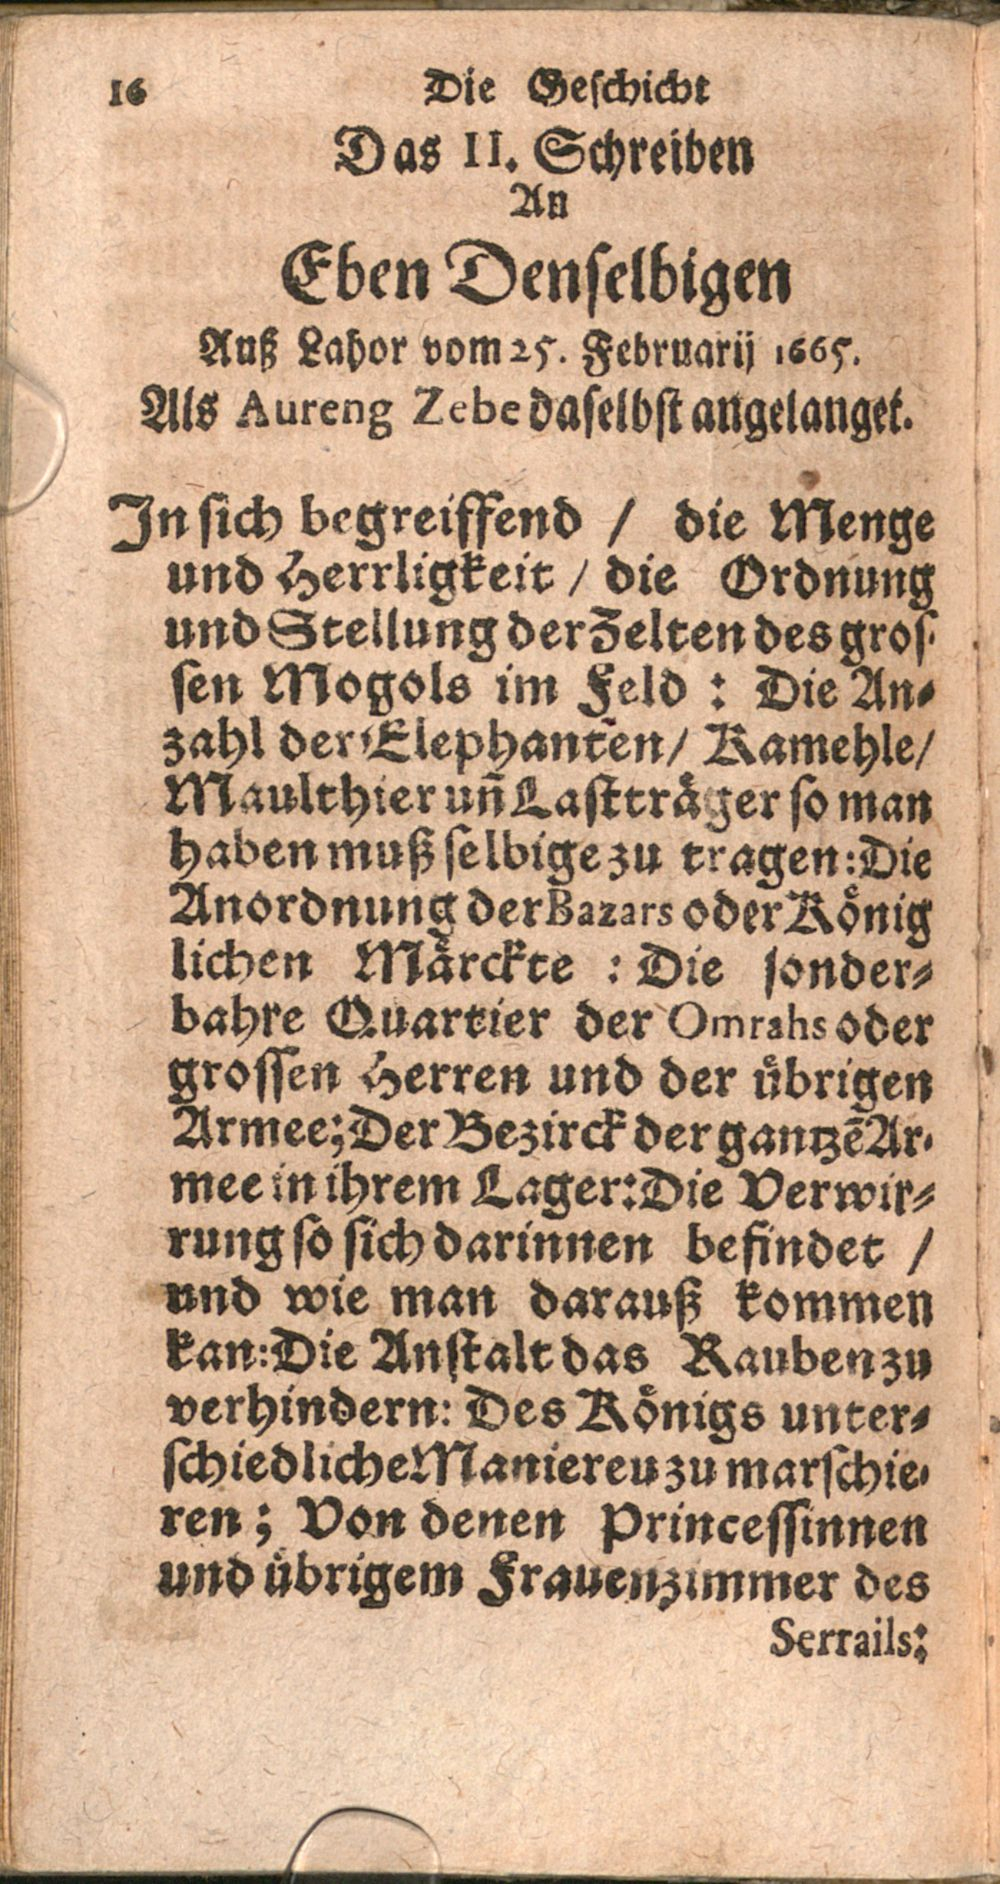 16 Die Geschicht
Das II. Schreiben
An
Eben Denselbigen
Auß Lahor vom 25. Februarij 1665.
Als Aureng Zebe daselbst angelanget.
In sich begreiffend / die Menge
und Herrligkeit / die Ordnung
und Stellung der Zelten des gros-
sen Mogols im Feld : Die An-
zahl der Elephanten / Kamehle /
Maulthier uñ Lastträger so man
haben muß selbige zu tragen: Die
Anordnung der Bazars oder König
lichen Märckte : Die sonder-
bahre Quartier der Omrahs oder
grossen Herren und der übrigen
Armee; Der Bezirck der gantzẽ Ar-
mee in ihrem Lager: Die Verwir-
rung so sich darinnen befindet /
und wie man darauß kommen
kan: Die Anstalt das Rauben zu
verhindern: Des Königs unter-
schiedliche Maniereu zu marschie-
ren; Von denen Princessinnen
und übrigem Frauenzimmer des
Serrails: